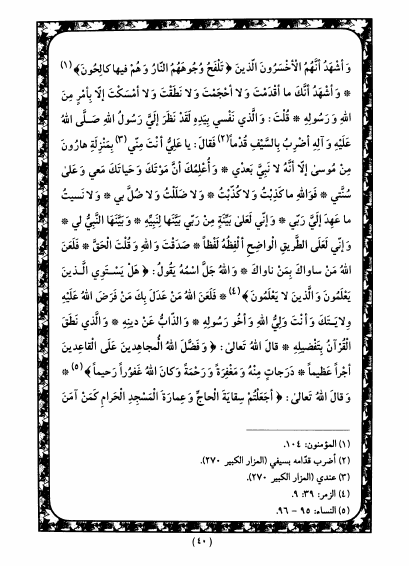 وَ أَشْهَدُ أَنَّهُمُ الْأَخْسَرُونَ الَّذينَ ﴿ تَلْفَحُ وُجُوهَهُمُ النّارُ وَ هُمْ فيها كالِحُونَ ﴾ (١)
* وَ أَشْهَدُ أَنَّكَ ما أَقْدَمْتَ وَ لا أَحْجَمْتَ وَ لا نَطَقْتَ وَ لا أَمْسَكْتَ إِلّا بِأَمْرٍ مِنَ
اللهِ وَ رَسُولِهِ * قُلْتَ: وَ الَّذي نَفْسي بِيَدِهِ لَقَدْ نَظَرَ إِلَيَّ رَسُولُ اللهِ صَلَّى اللهُ
عَلَيْهِ وَ آلِهِ أَضْرِبُ بِالسَّيْفِ قُدْماً (٢) فَقالَ: يا عَلِيُّ أَنْتَ مِنّي (٣) بِمَنْزِلَةِ هارُونَ
مِنْ مُوسى إِلّا أَنَّهُ لا نَبِيَّ بَعْدي * وَ أُعْلِمُكَ أَنَّ مَوْتَكَ وَ حَياتَكَ مَعي وَ عَلى
سُنَّتي * فَوَاللهِ ما كَذِبْتُ وَ لا كُذِّبْتُ * وَ لا ضَلَلْتُ وَ لا ضُلَّ بي * وَ لا نَسيتُ
ما عَهِدَ إِلَيَّ رَبّي * وَ إِنّي لَعَلى بَيِّنَةٍ مِنْ رَبّي بَيَّنَها لِنَبِيِّهِ * وَ بَيَّنَهَا النَّبِيُّ لي *
وَ إِنّي لَعَلَى الطَّريقِ الْواضِحِ أَلْفِظُهُ لَفْظاً * صَدَقْتَ وَ اللهِ وَ قُلْتَ الْحَقَّ * فَلَعَنَ
اللهُ مَنْ ساواكَ بِمَنْ ناواكَ * وَ اللهُ جَلَّ اسْمُهُ يَقُولُ: ﴿ هَلْ يَسْتَوِي الَّذينَ
يَعْلَمُونَ وَ الَّذينَ لا يَعْلَمُونَ ﴾ (٤) * فَلَعَنَ اللهُ مَنْ عَدَلَ بِكَ مَنْ فَرَضَ اللهُ عَلَيْهِ
وِلايَتَكَ وَ أَنْتَ وَلِيُّ اللهِ وَ أَخُو رَسُولِهِ * وَ الذّابُّ عَنْ دينِهِ * وَ الَّذي نَطَقَ
الْقُرْآنُ بِتَفْضيلِهِ * قالَ اللهُ تَعالى: ﴿ وَ فَضَّلَ اللهُ الْمُجاهِدينَ عَلَى الْقاعِدينَ
أَجْراً عَظيماً * دَرَجاتٍ مِنْهُ وَ مَغْفِرَةً وَ رَحْمَةً وَ كانَ اللهُ غَفُوراً رَحيماً ﴾ (٥) *
وَ قالَ اللهُ تَعالى: ﴿ أَجَعَلْتُمْ سِقايَةَ الْحاجِّ وَ عِمارَةَ الْمَسْجِدِ الْحَرامِ كَمَنْ آمَنَ
(١) المؤمنون: ١٠٤.
(٢) أضرب قدّامه بسيفي (المزار الكبير ٢٧٠).
(٣) عندي (المزار الكبير ٢٧٠).
(٤) الزمر: ٣٩: ٩.
(٥) النساء: ٩٥ – ٩٦.
(٤٠)